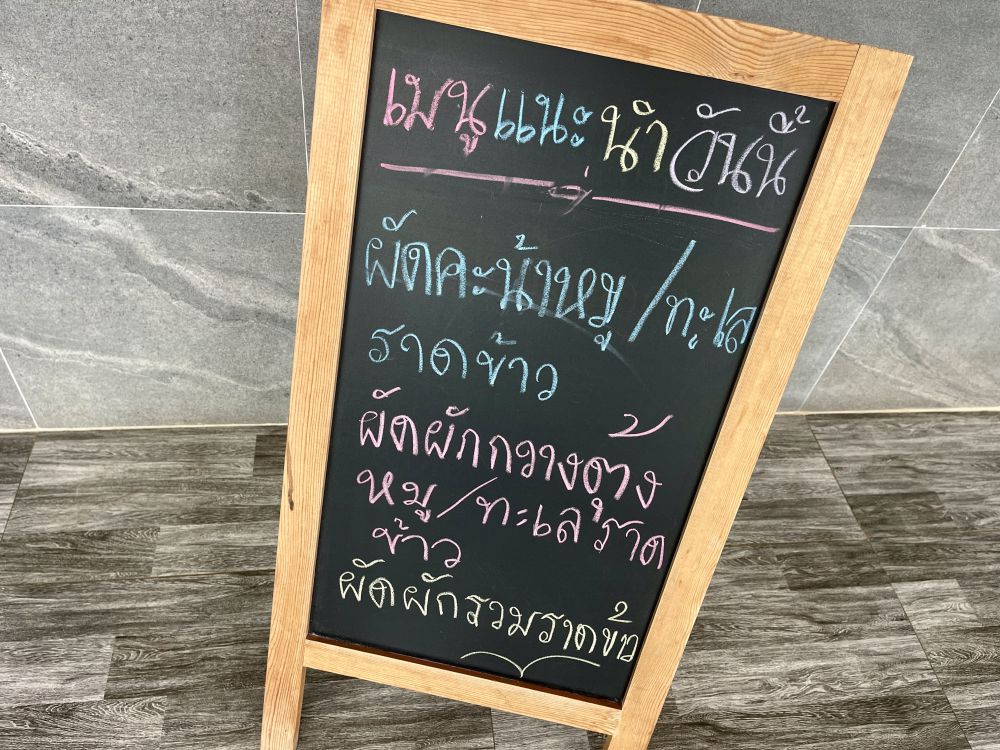 เมนูแนะนำวันนี้
ผัดคะน้าหมู/ทะเล
ราดข้าว
ผัดผักกวางตุ้ง
หมู/ทะเลราด
ข้าว
ผัดผักรวมราดข้าว